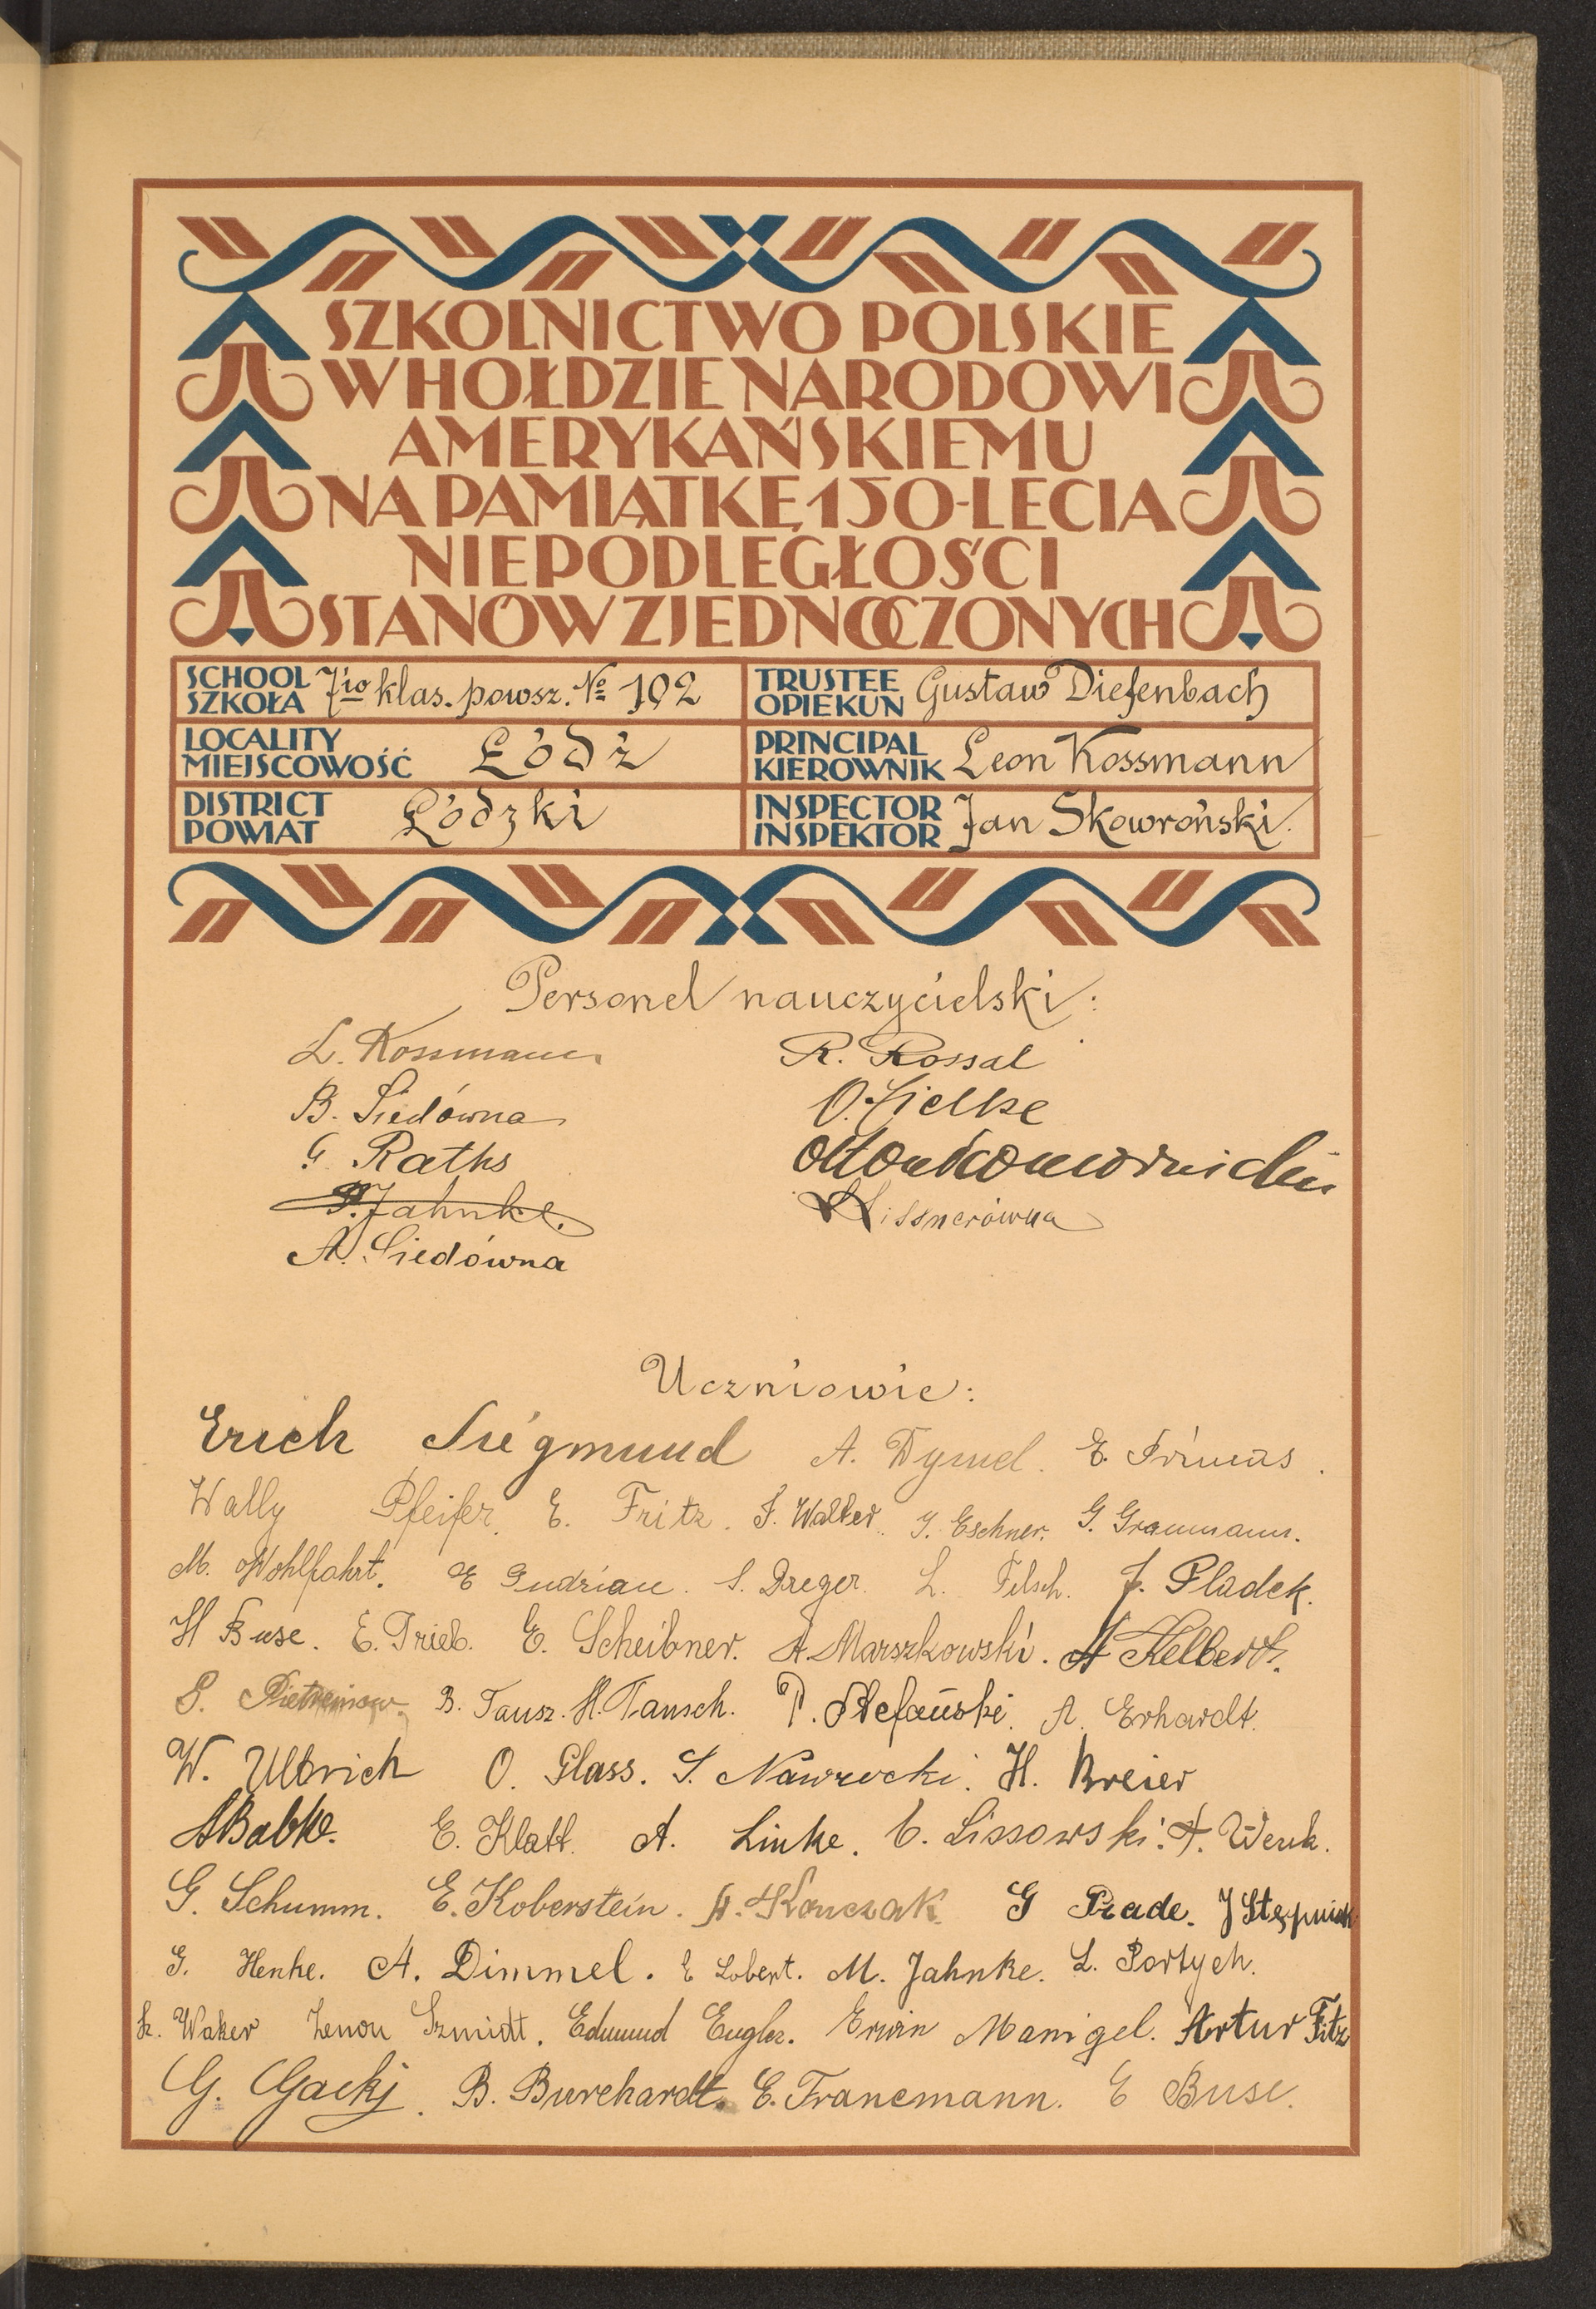 SZKOLNICTWO POLSKIE
W HOŁDZIE NARODOWI
AMERYKAŃSKIEMU
NA PAMIĄTKĘ 150-LECIA
NIEPODLEGŁOŚCI
STANÓW ZJEDNOCZONYCH
SCHOOL SZKOŁA 7io klas. powsz. № 102
TRUSTEE OPIEKUN Gustaw Diefenbach
LOCALITY MIEJSCOWOŚĆ Łódź
PRINCIPAL KIEROWNIK Leon Kossmann
DISTRICT POWIAT Łódzki
INSPECTOR INSPEKTOR Jan Skowroński.
Personel nauczycielski:
L. Kossmann R. Rossal
B. Siedówna O. Zielke
G. Raths
P. Jahnke.
A. Siedówna
Uczniowie:
Erich Siegmund A. Dymel. E. Primus.
Wally Pfeifer. E. Fritz. F. Walter. J. Eschner. G. Graumann.
M. Wohlfahrt. E Gudrian. S. Dreger. L. Filsch. J. Pladek.
H Buse. E. Trieb. E. Scheibner. A. Marszkowski. A Kelbert.
S. B. Tausz. H. Tausch. P. Stefański. A. Erhardt.
W. Ulbrich O. Glass. S. Nawrocki. H. Breier
A Babke. E. Klatt. A. Linke. C. Lissowski. A. Wenk.
G. Schumm. E. Koberstein. A. Konczak. G Prade. J Stępniak
G. Henke. A. Dimmel. E Lobert. M. Jahnke. L. Portych.
K. Waker Zenon Szmidt. Edmund Engler. Erwin Manigel. Artur Fitz
G. Gacki. B. Burchardt. E. Francmann. E Buse.